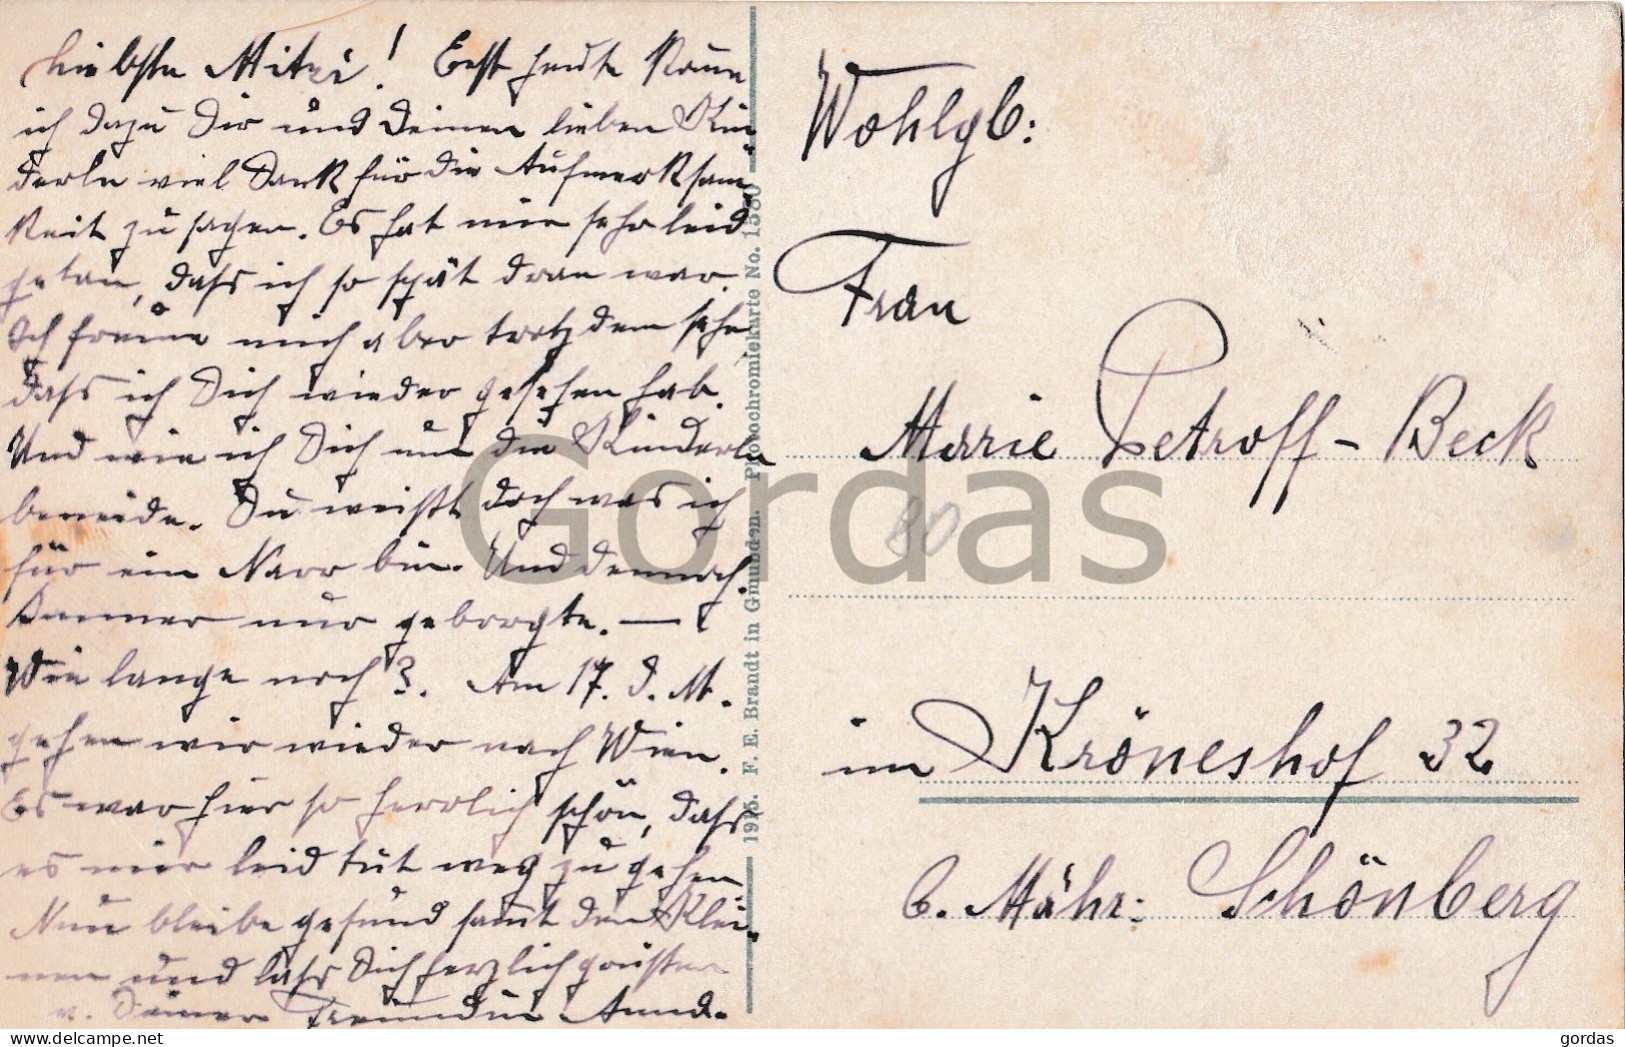 Liebste Mitzi! Erst heute komme
ich dazu Dir und Deinen lieben Kin-
derln viel Dank für die Aufmerksam-
keit zu sagen. Es hat mir sehr leid
getan, dass ich so spät dran war.
Ich freue mich aber trotzdem sehr,
dass ich Dich wieder gesehen hab.
Und wie ich Dich um die Kinderln
beneide. Du weißt doch was ich
für ein Narr bin. Und dennoch.
Immer nur geborgte. —
Wie lange noch?. Am 17. d. M.
gehen wir wieder nach Wien.
Es war hier so herrlich schön, dass
es mir leid tut weg zu gehen
Nun bleibe gesund samt den Klei-
nen und lass Dich herzlich grüßen
v. Deiner Freundin
F. E. Brandt in Gmunden. Photochromiekarte No.
Wohlgb:
Frau
Marie Petroff-Beck
im Kröneshof 32
b. Mähr: Schönberg
80
Gordas
delcampe.net
gordas